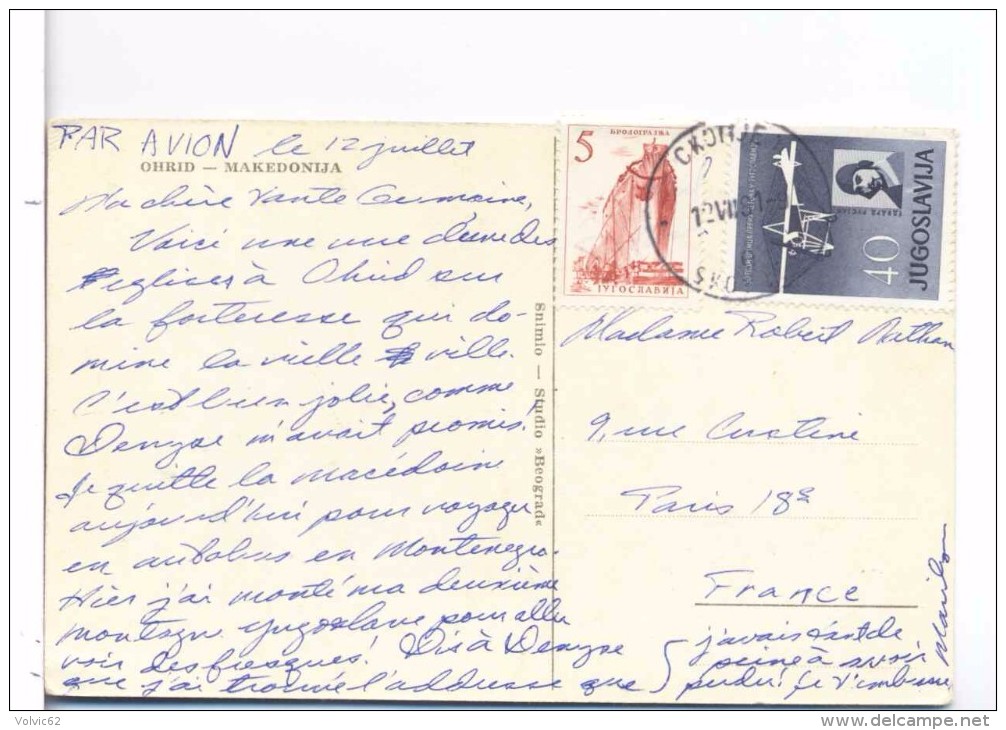 PAR AVION le 12 juillet
OHRID — MAKEDONIJA
Ma chère Tante Germaine,
Voici une vue d'une des
églises à Ohrid sur
la forteresse qui do-
mine la vieille ville.
C'est bien jolie, comme
Denyse m'avait promis!
Je quitte la Macédoine
aujourd'hui pour voyager
en autobus en Montenegro.
Hier j'ai monté ma deuxième
montagne yugoslave pour aller
voir des fresques! Dis à Denyse
que j'ai trouvé l'addresse que
j'avais tant de
peine à avoir
perdu! Je t'embrasse
Snimio — Studio »Beograd«
5
БРОДОГРАДЊА
ЈУГОСЛАВИЈА
СКОПЈЕ
12 VII 61-9
SKO
40
JUGOSLAVIJA
Madame Robert Nathan
9, rue Custine
Paris 18e
France
Volvic62